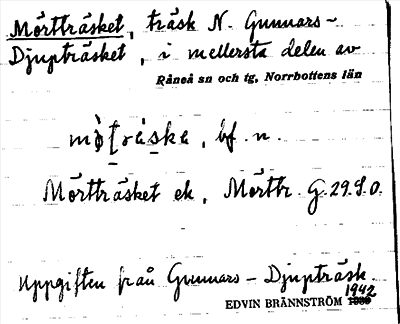 Mörtträsket, träsk N. Gunnars-
Djupträsket, i mellersta delen av
Råneå sn och tg, Norrbottens län
bf. n.
Mörtträsket ek, Mörttr. G. 29. S. O.
Uppgiften från Gunnars-Djupträsk.
EDVIN BRÄNNSTRÖM 1942